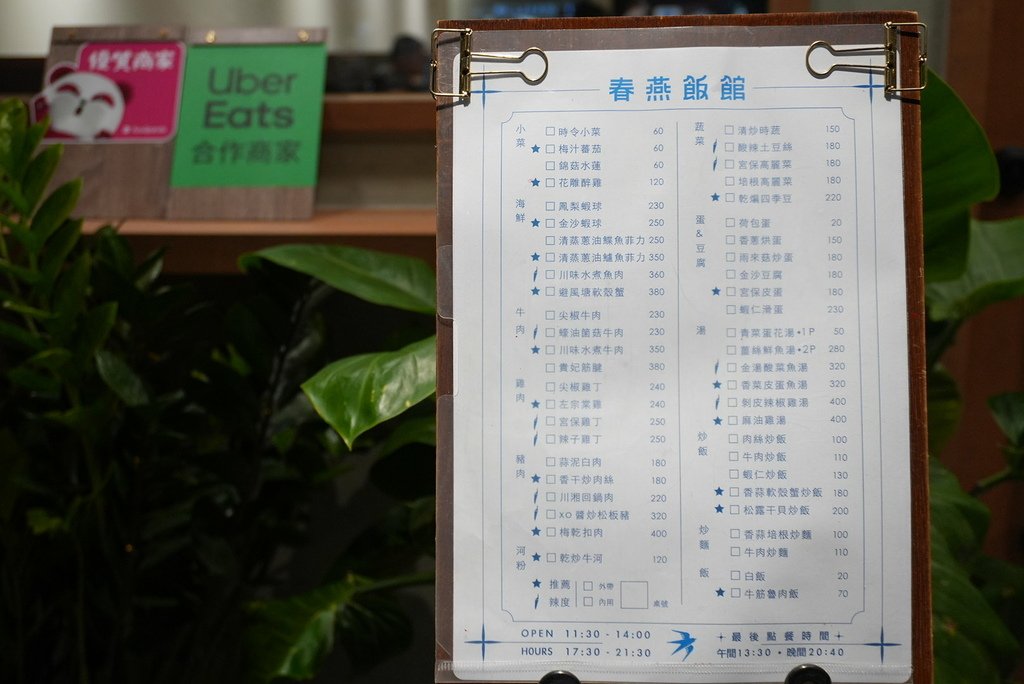 優質商家
Uber
Eats
合作商家
春燕飯館
小菜
時令小菜 60
★ 梅汁蕃茄 60
錦菇水蓮 60
★ 花雕醉雞 120
海鮮
鳳梨蝦球 230
★ 金沙蝦球 250
清蒸蔥油鰈魚菲力 250
★ 清蒸蔥油鱸魚菲力 350
川味水煮魚肉 360
★ 避風塘軟殼蟹 380
牛肉
尖椒牛肉 230
蠔油菌菇牛肉 230
★ 川味水煮牛肉 350
貴妃筋腱 380
雞肉
尖椒雞丁 240
★ 左宗棠雞 240
宮保雞丁 250
辣子雞丁 250
豬肉
蒜泥白肉 180
★ 香干炒肉絲 180
川湘回鍋肉 220
xo醬炒松板豬 320
★ 梅乾扣肉 400
河粉
★ 乾炒牛河 120
★ 推薦 外帶
辣度 內用 桌號
蔬菜
清炒時蔬 150
酸辣土豆絲 180
宮保高麗菜 180
培根高麗菜 180
★ 乾煸四季豆 220
蛋&豆腐
荷包蛋 20
香蔥烘蛋 150
雨來菇炒蛋 180
金沙豆腐 180
★ 宮保皮蛋 180
蝦仁滑蛋 230
湯
青菜蛋花湯•1P 50
薑絲鮮魚湯•2P 280
金湯酸菜魚湯 320
★ 香菜皮蛋魚湯 320
剝皮辣椒雞湯 400
★ 麻油雞湯 400
炒飯
肉絲炒飯 100
牛肉炒飯 110
蝦仁炒飯 130
★ 香蒜軟殼蟹炒飯 180
★ 松露干貝炒飯 200
炒麵
香蒜培根炒麵 100
牛肉炒麵 110
飯
白飯 20
★ 牛筋魯肉飯 70
OPEN 11:30 - 14:00
HOURS 17:30 - 21:30
最後點餐時間
午間13:30・晚間20:40